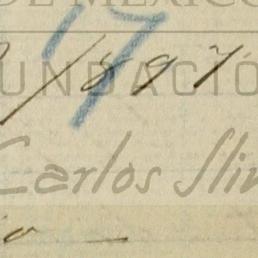 DE MÉXICO
17
/897
FUNDACIÓ
Carlos Slim